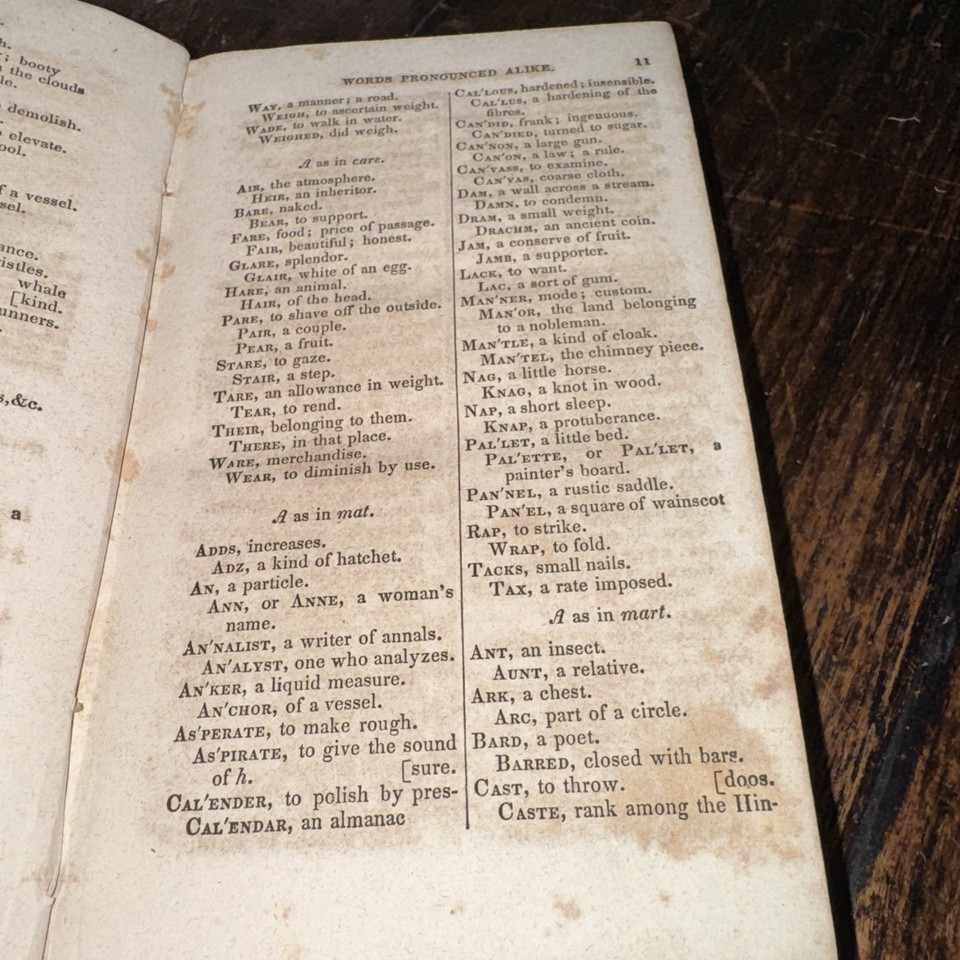 h.
; booty
the clouds
le.
demolish.
elevate.
ool.
f a vessel.
sel.
ance.
istles.
whale
[kind.
unners.
s,&c.
a
WORDS PRONOUNCED ALIKE.
11
WAY, a manner; a road.
WEIGH, to ascertain weight.
WADE, to walk in water.
WEIGHED, did weigh.
A as in care.
AIR, the atmosphere.
HEIR, an inheritor.
BARE, naked.
BEAR, to support.
FARE, food; price of passage.
FAIR, beautiful; honest.
GLARE, splendor.
GLAIR, white of an egg.
HARE, an animal.
HAIR, of the head.
PARE, to shave off the outside.
PAIR, a couple.
PEAR, a fruit.
STARE, to gaze.
STAIR, a step.
TARE, an allowance in weight.
TEAR, to rend.
THEIR, belonging to them.
THERE, in that place.
WARE, merchandise.
WEAR, to diminish by use.
A as in mat.
ADDS, increases.
ADZ, a kind of hatchet.
AN, a particle.
ANN, or ANNE, a woman's
name.
AN'NALIST, a writer of annals.
AN'ALYST, one who analyzes.
AN'KER, a liquid measure.
AN'CHOR, of a vessel.
AS'PERATE, to make rough.
AS'PIRATE, to give the sound
of h. [sure.
CAL'ENDER, to polish by pres-
CAL'ENDAR, an almanac
CAL'LOUS, hardened; insensible.
CAL'LUS, a hardening of the
fibres.
CAN'DID, frank; ingenuous.
CAN'DIED, turned to sugar.
CAN'NON, a large gun.
CAN'ON, a law; a rule.
CAN'VASS, to examine.
CAN'VAS, coarse cloth.
DAM, a wall across a stream.
DAMN, to condemn.
DRAM, a small weight.
DRACHM, an ancient coin.
JAM, a conserve of fruit.
JAMB, a supporter.
LACK, to want.
LAC, a sort of gum.
MAN'NER, mode; custom.
MAN'OR, the land belonging
to a nobleman.
MAN'TLE, a kind of cloak.
MAN'TEL, the chimney piece.
NAG, a little horse.
KNAG, a knot in wood.
NAP, a short sleep.
KNAP, a protuberance.
PAL'LET, a little bed.
PAL'ETTE, or PAL'LET, a
painter's board.
PAN'NEL, a rustic saddle.
PAN'EL, a square of wainscot
RAP, to strike.
WRAP, to fold.
TACKS, small nails.
TAX, a rate imposed.
A as in mart.
ANT, an insect.
AUNT, a relative.
ARK, a chest.
ARC, part of a circle.
BARD, a poet.
BARRED, closed with bars.
CAST, to throw. [doos.
CASTE, rank among the Hin-